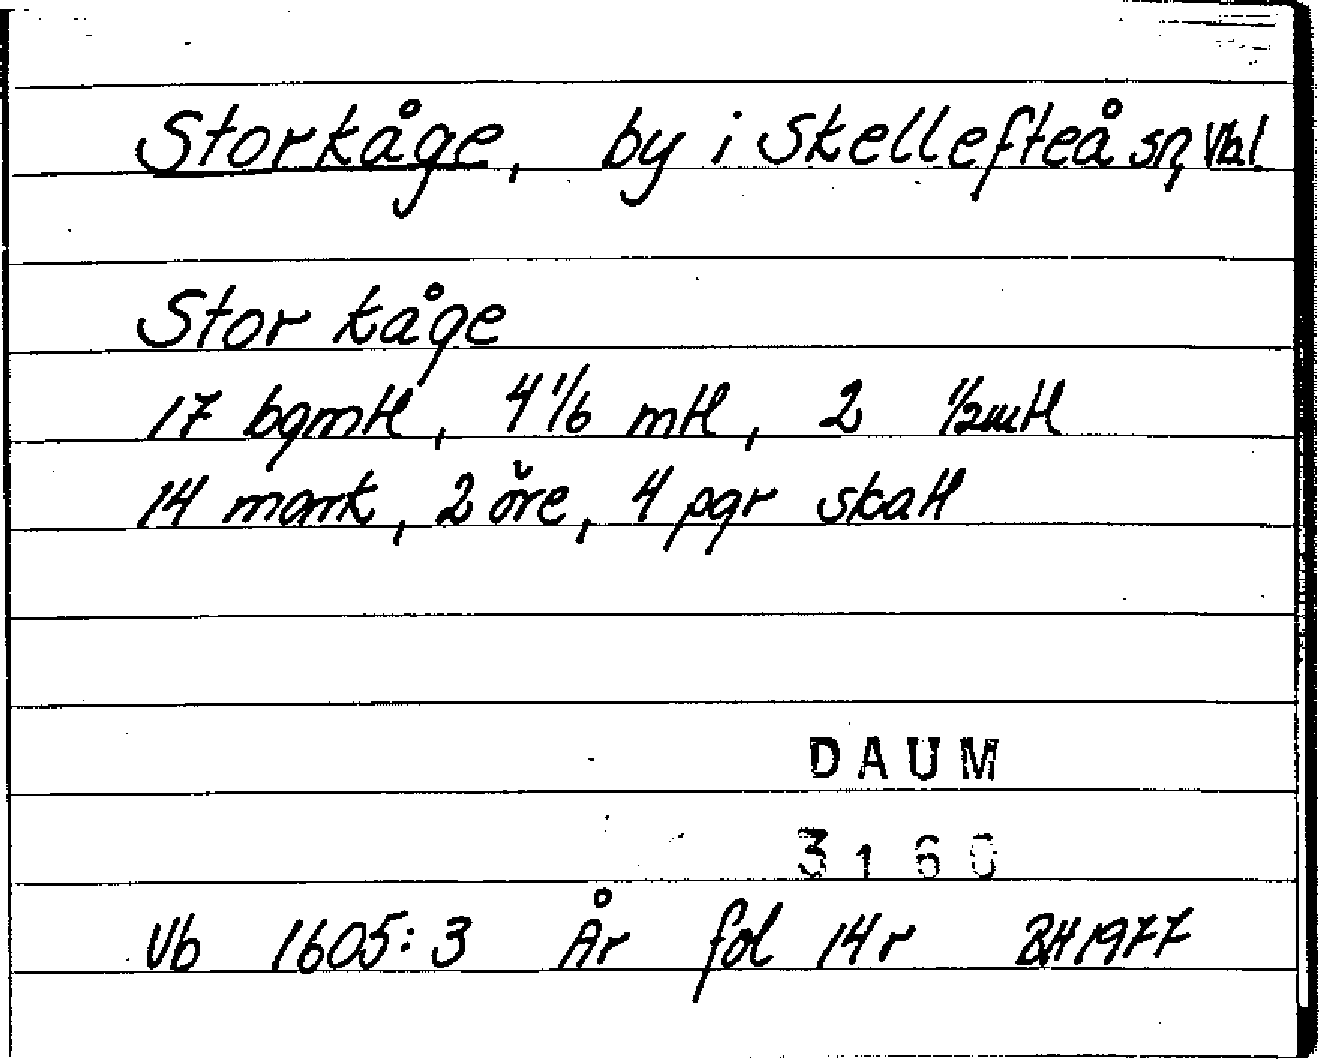 Storkåge, by i Skellefteå sn, Vbl
Stor kåge
17 bgmtl, 4 1/6 mtl, 2 1/2mtl
14 mark, 2 öre, 4 pgr skatt
DAUM
3160
Vb 1605:3 År fol 14r BH 1977